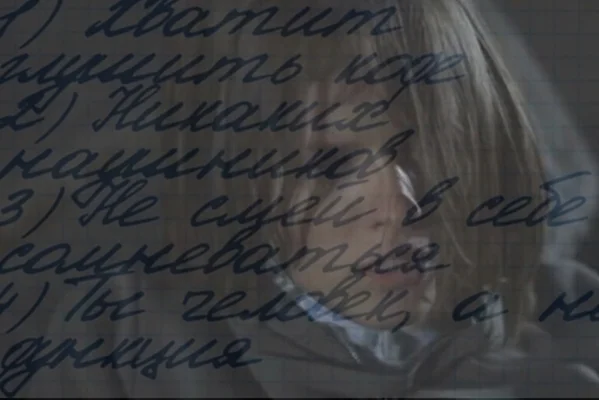 1) Хватит
глушить кофе
2) Никаких
наушников
3) Не смей в себе
сомневаться
4) Ты человек, а не
функция